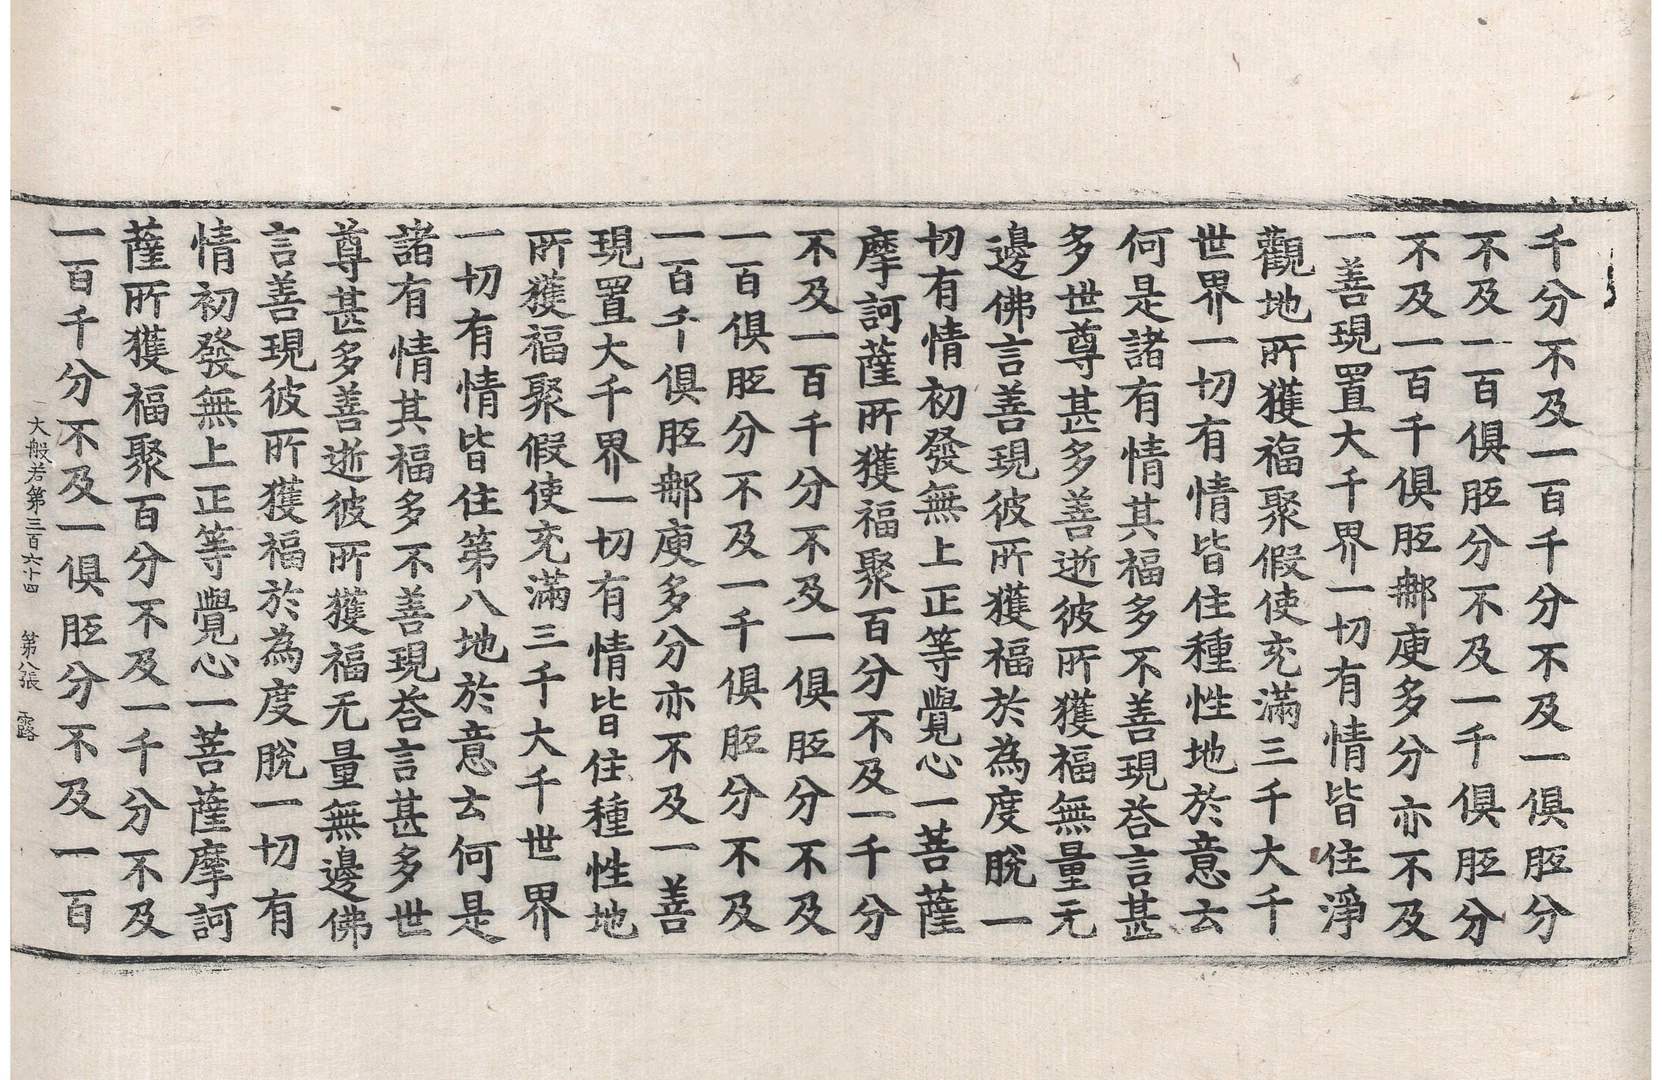 千分不及一百千分不及一俱胝分
不及一百俱胝分不及一千俱胝分
不及一百千俱胝那庾多分亦不及
一善現置大千界一切有情皆住淨
觀地所獲福聚假使充滿三千大千
世界一切有情皆住種性地於意云
何是諸有情其福多不善現荅言甚
多世尊甚多善逝彼所獲福無量无
邊佛言善現彼所獲福於為度脫一
切有情初發無上正等覺心一菩薩
摩訶薩所獲福聚百分不及一千分
不及一百千分不及一俱胝分不及
一百俱胝分不及一千俱胝分不及
一百千俱胝那庾多分亦不及一善
現置大千界一切有情皆住種性地
所獲福聚假使充滿三千大千世界
一切有情皆住第八地於意云何是
諸有情其福多不善現荅言甚多世
尊甚多善逝彼所獲福无量無邊佛
言善現彼所獲福於為度脫一切有
情初發無上正等覺心一菩薩摩訶
薩所獲福聚百分不及一千分不及
一百千分不及一俱胝分不及一百
大般若第三百六十四 第八張 露